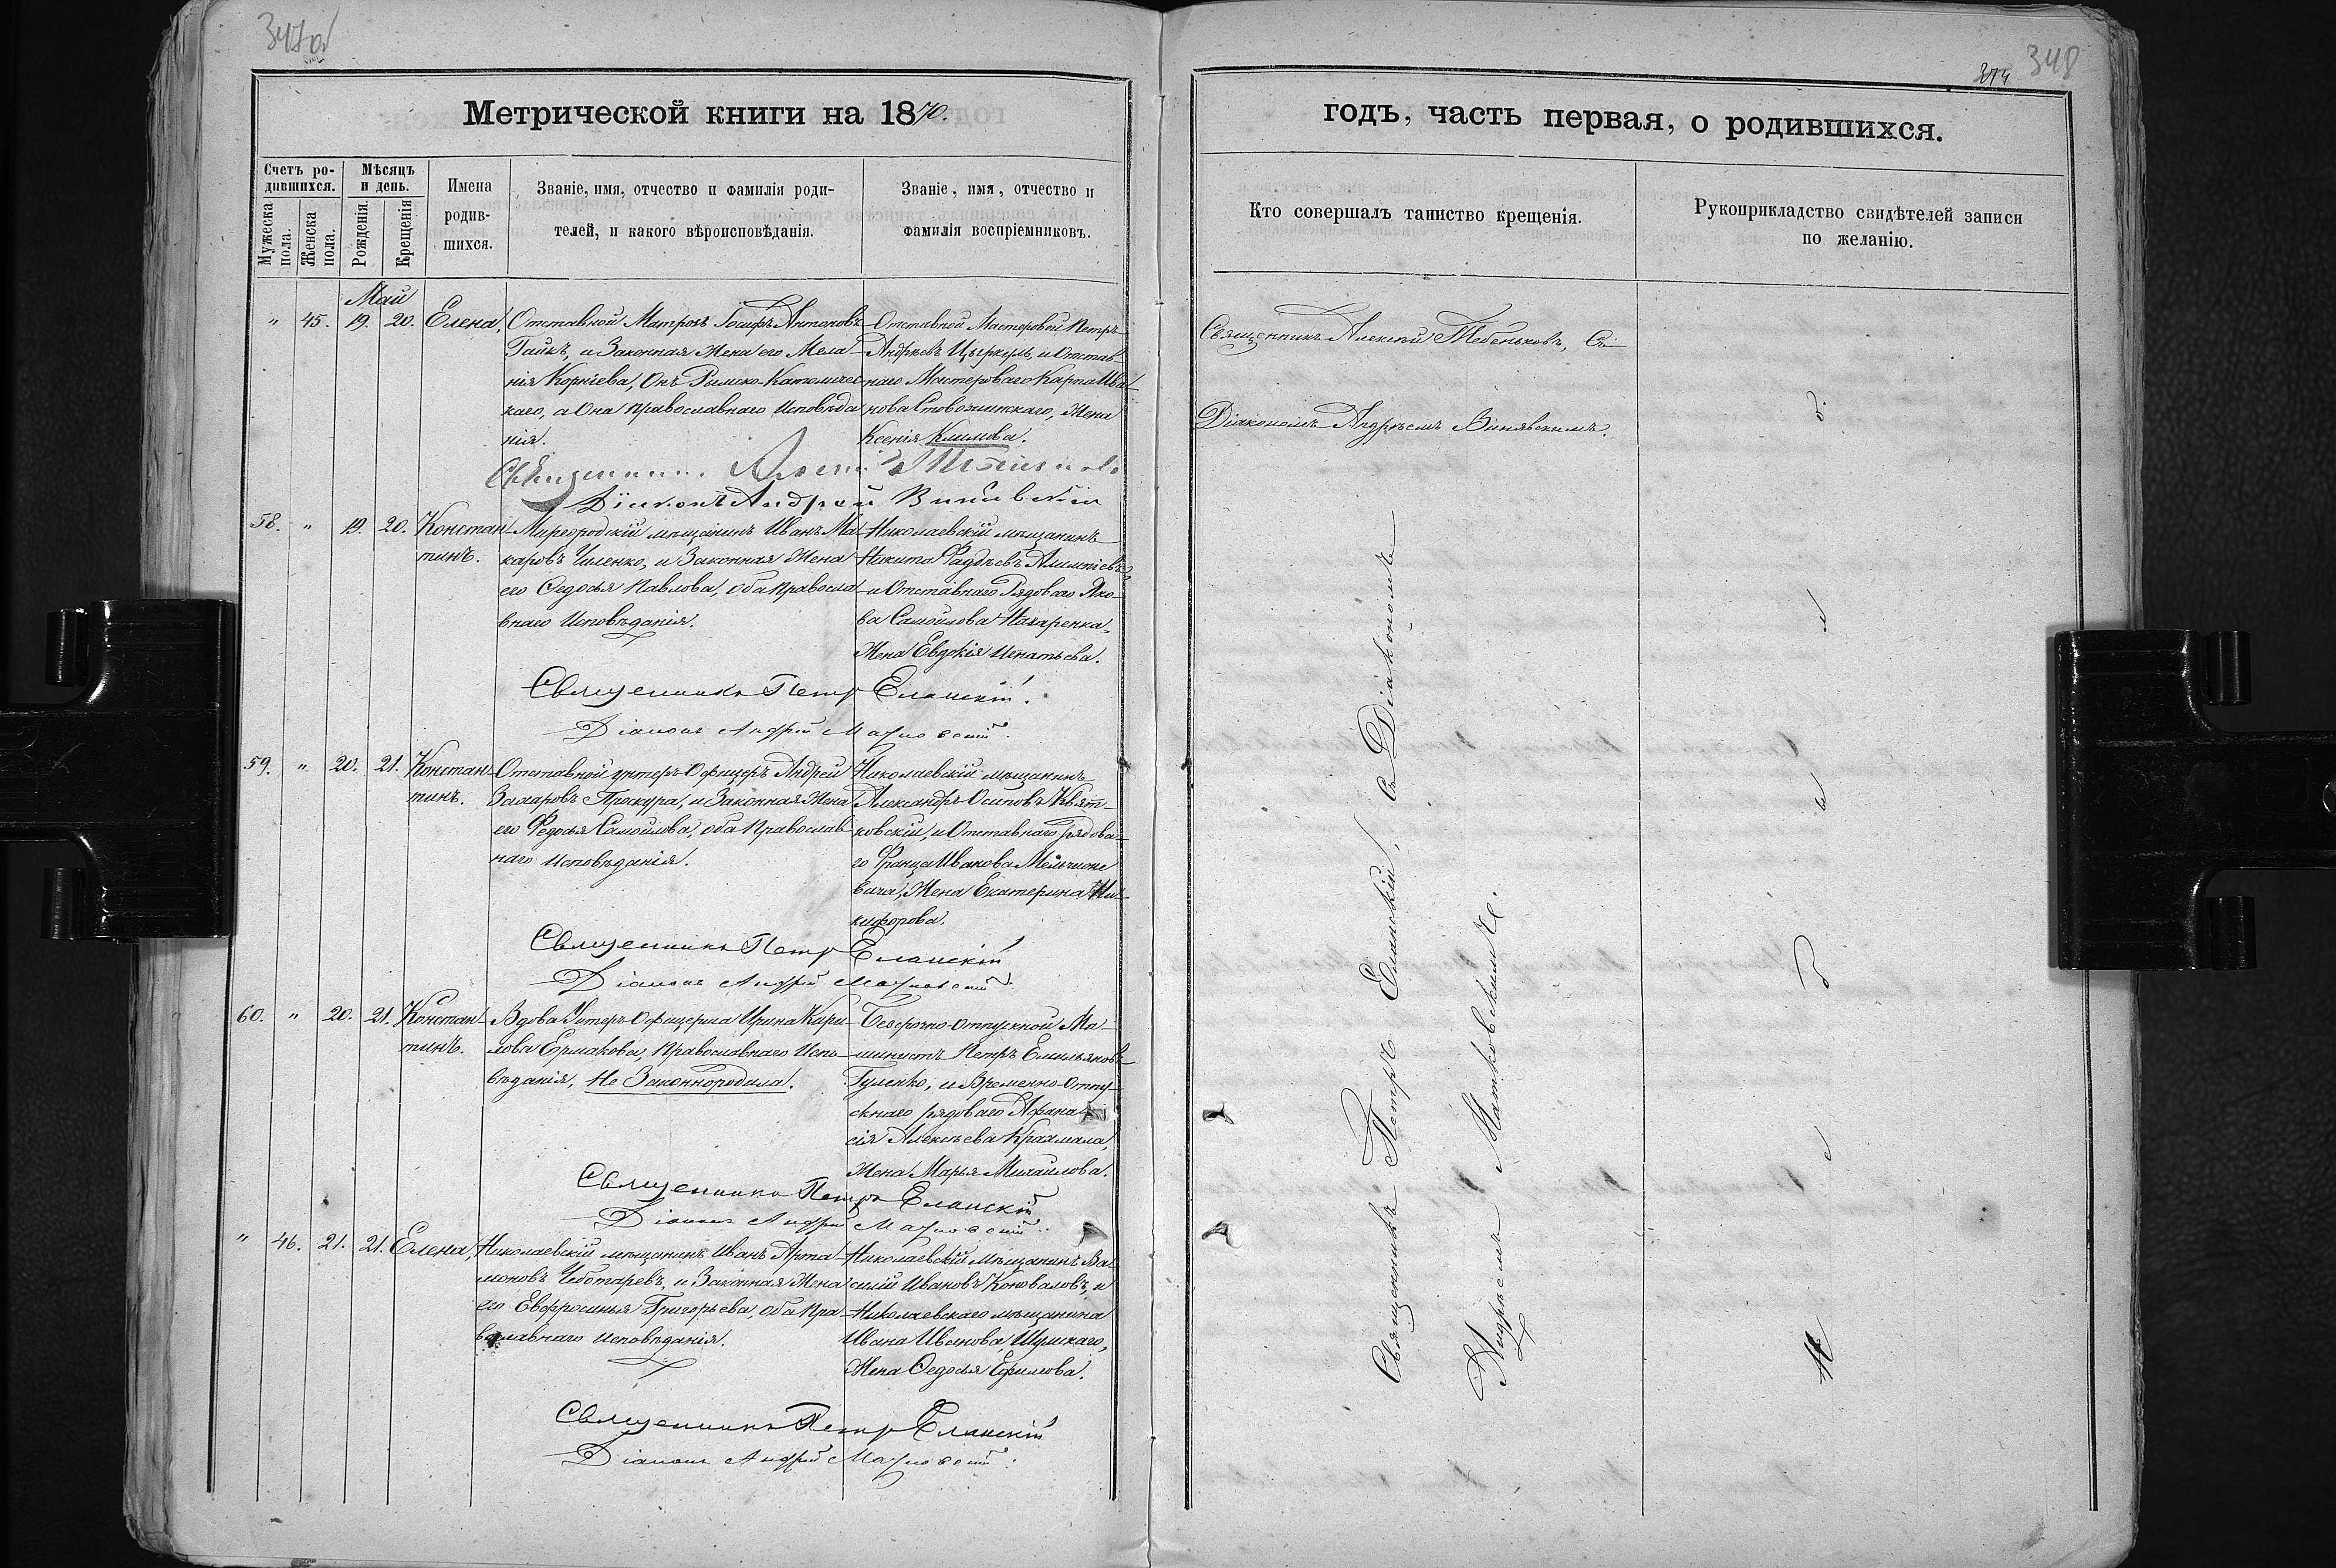 347об
Метрической книги на 1870.
Счетъ ро-
дившихся.
Мѣсяцъ
и день.
Имена
родив-
шихся.
Званіе, имя, отчество и фамилія роди-
телей, и какого вѣроисповѣданія.
Званіе, имя, отчество и
фамилія воспріемниковъ.
Мужеска
пола.
Женска
пола.
Рожденія.
Крещенія
Май
" 45. 19. 20. Елена,
Отставной Матросъ Іосифъ Антоновъ
Гайкъ, и Законная Жена его Мела-
нія Корніева, Онъ Римско-Католичес-
каго, а Она православнаго Исповѣда
нія.
Отставной Мастеровой Петръ
Андреевъ Цыркуль, и Отстав-
наго Мастероваго Карпа Ива-
нова Стовожинскаго, Жена
Ксенія Климова.
Священникъ Алексій
Діаконъ Андрей Винявскій
58. " 19. 20. Констан-
тинъ.
Миргородскій мѣщанинъ Иванъ Ма-
каровъ Чиленко, и Законная Жена
его Ѳедосья Павлова, оба Правосла-
внаго Исповѣданія.
Николаевскій мѣщанинъ
Никита Фадѣевъ Алимпіевъ,
и Отставнаго Рядоваго Яко-
ва Самойлова Назаренка,
Жена Евдокія Игнатьева.
Священникъ Петръ Еланскій.
Діаконъ Андрей
59. " 20. 21. Констан-
тинъ.
Отставной унтеръ-Офицеръ Андрей
Захаровъ Прокура, и Законная Жена
его Ѳедосья Самойлова, оба Православ-
наго Исповѣданія.
Николаевскій мѣщанинъ
Александръ Осиповъ Квят-
ковскій, и Отставнаго рядова-
го Франца Иванова
вича, Жена Екатерина Ни-
кифорова.
Священникъ Петръ Еланскій
Діаконъ Андрей
60. " 20. 21. Констан-
тинъ.
Вдова Унтеръ-Офицерша Ирина Кири-
лова Ермакова, Православнаго Испо-
вѣданія, Не Законнородила.
Безсрочно-отпускной Ма-
шинистъ Петръ Емельяновъ
Гуленко, и Временно-Отпу-
скнаго рядоваго Афана-
сія Алексѣева Крахмала,
Жена Марья Михайлова.
Священникъ Петръ Еланскій
Діаконъ Андрей
" 46. 21. 21. Елена,
Николаевскій мѣщанинъ Иванъ Арта-
моновъ Чеботаревъ, и Законная Жена
его Евфросинья Григорьева, оба Пра-
вославнаго Исповѣданія.
Николаевскій Мѣщанинъ Ва-
силій Ивановъ Коноваловъ, и
Николаевскаго мѣщанина
Ивана Иванова, Шумскаго,
Жена Ѳедосья Ефимова.
Священникъ Петръ Еланскій
Діаконъ Андрей
348
274
годъ, часть первая, о родившихся.
Кто совершалъ таинство крещенія.
Рукоприкладство свидѣтелей записи
по желанію.
Священникъ Алексій Тебеньковъ, Съ
Діакономъ Андреемъ Винявскимъ.
Священникъ Петръ Еланскій, съ Діакономъ
Андреемъ Матковскимъ.